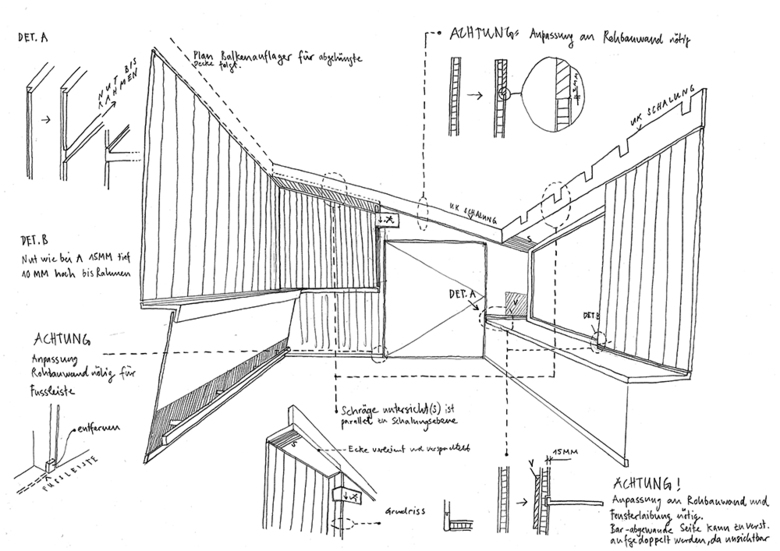 DET. A
NUT BIS
RAHMEN
Plan Balkenauflager für abgehängte
Decke folgt.
ACHTUNG: Anpassung an Rohbauwand nötig
UK SCHALUNG
UK SCHALUNG
S
DET. B
Nut wie bei A 15MM tief
10 MM hoch bis Rahmen
DET. A
V
DET. B
ACHTUNG
Anpassung
Rohbauwand nötig für
Fussleiste
entfernen
FUSSLEISTE
Schräge untersicht(S) ist
parallel zu Schalungsebene
S
Ecke verleimt und verspachtelt
Grundriss
V
15MM
ACHTUNG!
Anpassung an Rohbauwand und
Fensterlaibung nötig.
Bar-abgewandte Seite kann zuerst
aufgedoppelt werden, da unsichtbar